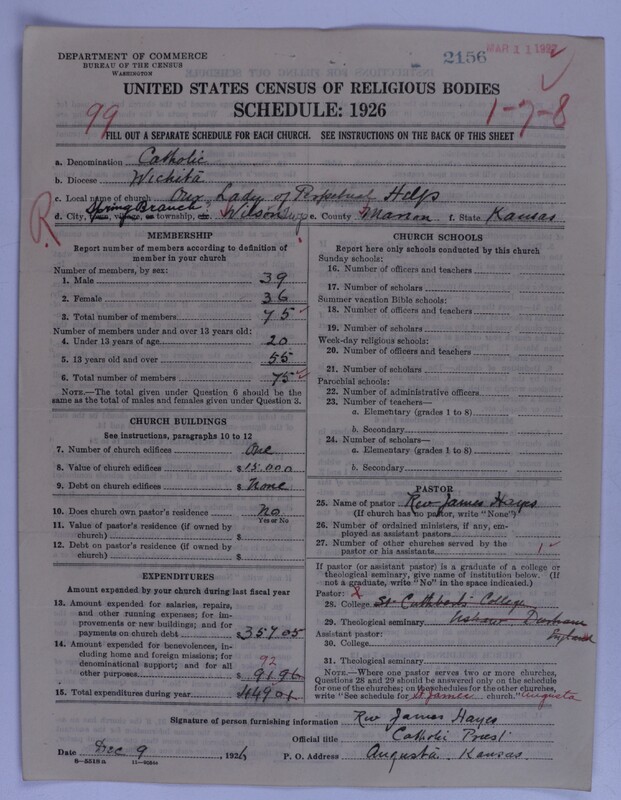 DEPARTMENT OF COMMERCE
BUREAU OF THE CENSUS
WASHINGTON
2156
MAR 11 1927
UNITED STATES CENSUS OF RELIGIOUS BODIES
SCHEDULE: 1926
99
1-7-8
FILL OUT A SEPARATE SCHEDULE FOR EACH CHURCH. SEE INSTRUCTIONS ON THE BACK OF THIS SHEET
a. Denomination Catholic
b. Diocese Wichita
c. Local name of church Our Lady of Perpetual Help
Spring Branch
R
d. City, village, township, e. County Marion f. State Kansas
MEMBERSHIP
Report number of members according to definition of member in your church
Number of members, by sex:
1. Male 39
2. Female 36
3. Total number of members 75
Number of members under and over 13 years old:
4. Under 13 years of age 20
5. 13 years old and over 55
6. Total number of members 75
NOTE.—The total given under Question 6 should be
same as the total of males and females given under Question 3.
CHURCH BUILDINGS
See instructions, paragraphs 10 to 12
7. Number of church edifices One
8. Value of church edifices $15.000
9. Debt on church edifices $None
10. Does church own pastor's residence No
Yes or No
11. Value of pastor's residence (if owned by
church) $
12. Debt on pastor's residence (if owned by
church) $
EXPENDITURES
Amount expended by your church during last fiscal year
13. Amount expended for salaries, repairs,
and other running expenses; for im-
provements or new buildings; and for
payments on church debt $357.05
14. Amount expended for benevolences, in-
cluding home and foreign missions; for
denominational support; and for all
92
other purposes $91.96
15. Total expenditures during year $449.01
CHURCH SCHOOLS
Report here only schools conducted by this church
Sunday schools:
16. Number of officers and teachers
17. Number of scholars
Summer vacation Bible schools:
18. Number of officers and teachers
19. Number of scholars
Week-day religious schools:
20. Number of officers and teachers
21. Number of scholars
Parochial schools:
22. Number of administrative officers
23. Number of teachers—
a. Elementary (grades 1 to 8)
b. Secondary
24. Number of scholars—
a. Elementary (grades 1 to 8)
b. Secondary
PASTOR
25. Name of pastor Rev James Hayes
(If church has no pastor, write "None")
26. Number of ordained ministers, if any, em-
ployed as assistant pastors
27. Number of other churches served by the
pastor or his assistants 1
If pastor (or assistant pastor) is a graduate of a college or
theological seminary, give name of institution below. (If
not a graduate, write "No" in the space indicated.)
Pastor: X
28. College St Cuthbert's College
29. Theological seminary Ushaw Durham
England
Assistant pastor:
30. College
31. Theological seminary
NOTE.—Where one pastor serves two or more churches,
Questions 28 and 29 should be answered only on the schedule
for one of the churches; on the schedules for the other churches,
write "See schedule for St James church." Augusta
Signature of person furnishing information Rev James Hayes
Official title Catholic Priest
Date Dec 9, 1926 P. O. Address Augusta Kansas